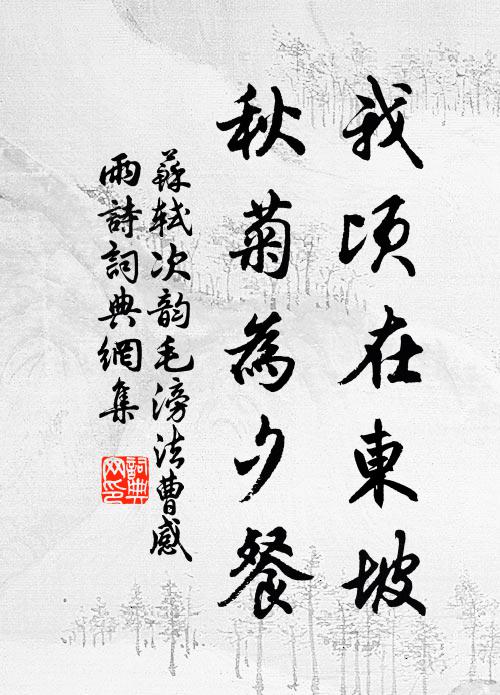 我頃在東坡
秋菊為夕餐
蘇軾次韵毛滂法曹感
雨詩詞典網集
詞典
网印